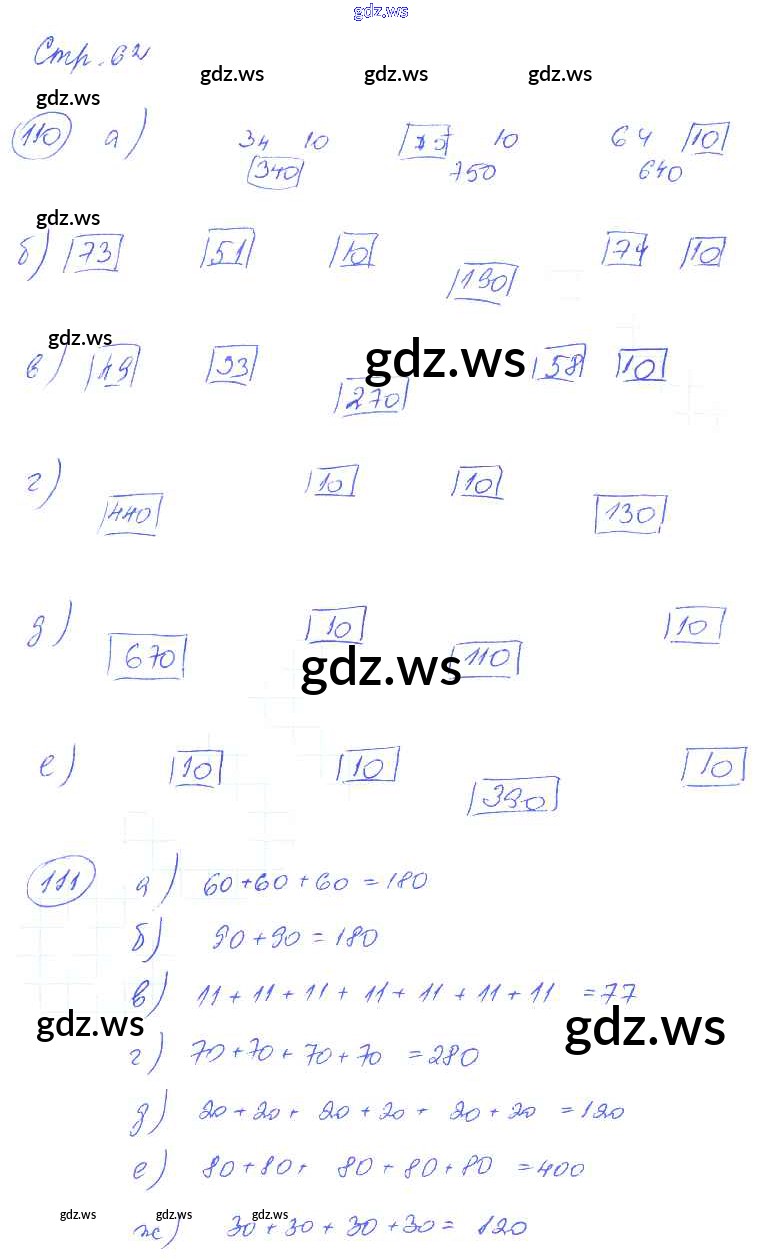 gdz.ws
Стр. 62
gdz.ws gdz.ws gdz.ws
gdz.ws
110 а) 34 10 10 64 10
340 750 640
gdz.ws
б) 73 51 10 190 74 10
gdz.ws gdz.ws
в) 49 93 270 58 10
г) 440 10 10 130
д) 670 10 110 10
gdz.ws
е) 10 10 390 10
111 а) 60+60+60=180
б) 90+90=180
в) 11+11+11+11+11+11+11=77
gdz.ws gdz.ws
г) 70+70+70+70=280
д) 20+20+20+20+20+20=120
е) 80+80+80+80+80=400
gdz.ws gdz.ws gdz.ws
ж) 30+30+30+30=120